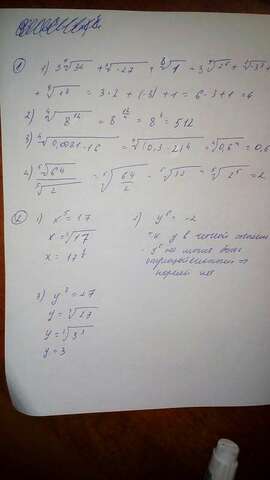 1) 1) 3 ⁵√32 + ³√-27 + ⁶√1 = 3 ⁵√2⁵ + ³√-3³ +
+ ⁶√1⁶ = 3·2 + (-3) + 1 = 6 - 3 + 1 = 4
2) = 8³ = 512
3) ⁴√0,0081·16 = ⁴√(0,3·2)⁴ = ⁴√0,6⁴ = 0,6
4) ⁵√64 / ⁵√2 = ⁵√64/2 = ⁵√32 = ⁵√2⁵ = 2
2) 1) x⁵ = 17
x = ⁵√17
2) = -2
т.к. y в четной степени
не может быть
отрицательным =>
корней нет
3) y³ = 27
y = ³√27
y = ³√3³
y = 3